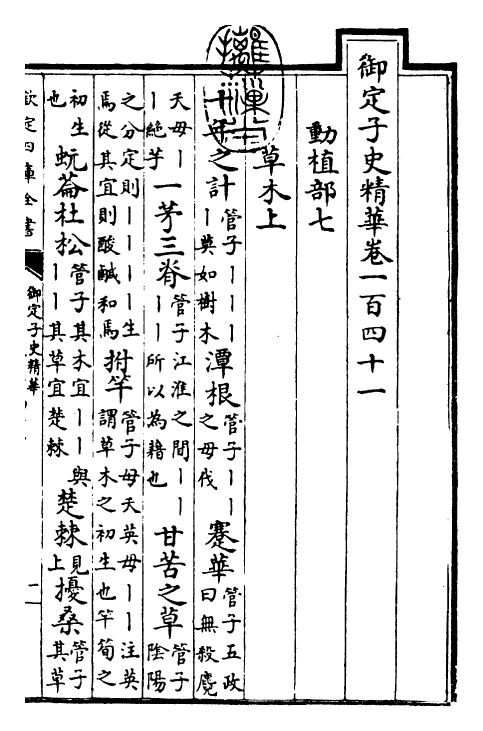 御定子史精華卷一百四十一
動植部七
草木上
十年之計管子丨丨丨丨莫如樹木潭根管子丨丨之毋伐蹇華管子五政曰無殺麑
夭毋丨丨絶芋一茅三脊管子江淮之間丨丨丨丨所以為藉也甘苦之草管子陰陽
之分定則丨丨丨丨生焉從其宜則酸鹹和焉拊竿管子毋夭英毋丨丨注英謂草木之初生也竿筍之
初生也蚖菕杜松管子其木宜丨丨與丨丨其草宜楚棘楚棘見上擾桑管子其草
欽定四庫全書
御定子史精華